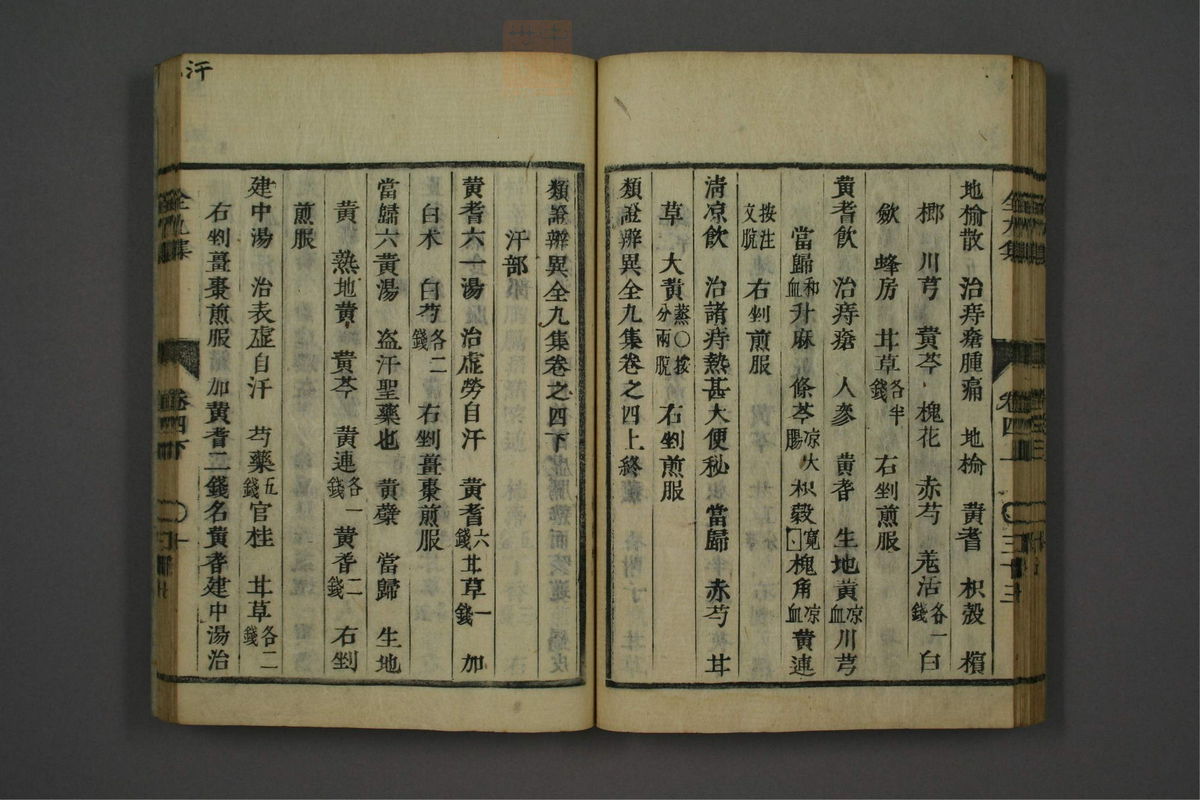 地榆散　治痔瘡腫痛　地榆　黄耆　枳殼　檳
榔　川芎　黄芩　槐花　赤芍　羗活各一錢　白
歛　蜂房　甘草各半錢　右剉煎服
黄耆飲　治痔瘡　人參　黄耆　生地黄凉血　川芎
當歸和血　升麻　條芩凉大腸　枳殼寬　槐角凉血　黄連
按注文脫　右剉煎服
清凉飲　治諸痔熱甚大便秘　當歸　赤芍　甘
草　大黄蒸〇按分兩脫　右剉煎服
類證辨異全九集卷之四上終
類證辨異全九集卷之四下
汗部
黄耆六一湯　治虛勞自汗　黄耆六錢　甘草一錢　加
白术　白芍各二錢　右剉薑棗煎服
當歸六黄湯　盗汗聖藥也　黄蘗　當歸　生地
黄　熟地黄　黄芩　黄連各一錢　黄耆二錢　右剉
煎服
建中湯　治表虛自汗　芍藥五錢　官桂　甘草各二錢
右剉薑棗煎服　加黄耆二錢名黄耆建中湯治
汗
全九集
卷四下
全九集
三十三